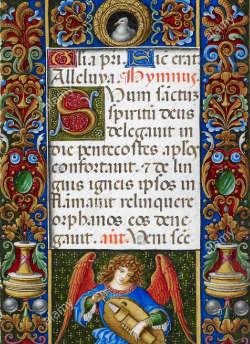 Glia pri. Sic erat
Alleluya. Hymnus.
Sum sactus
spiritu deus
delegauit in
die pentecostes aplos
confortauit. & de lin
guis igneis ipsos in
flamauit relinquere
orphanos eos dene
gauit. ant. Veni sce